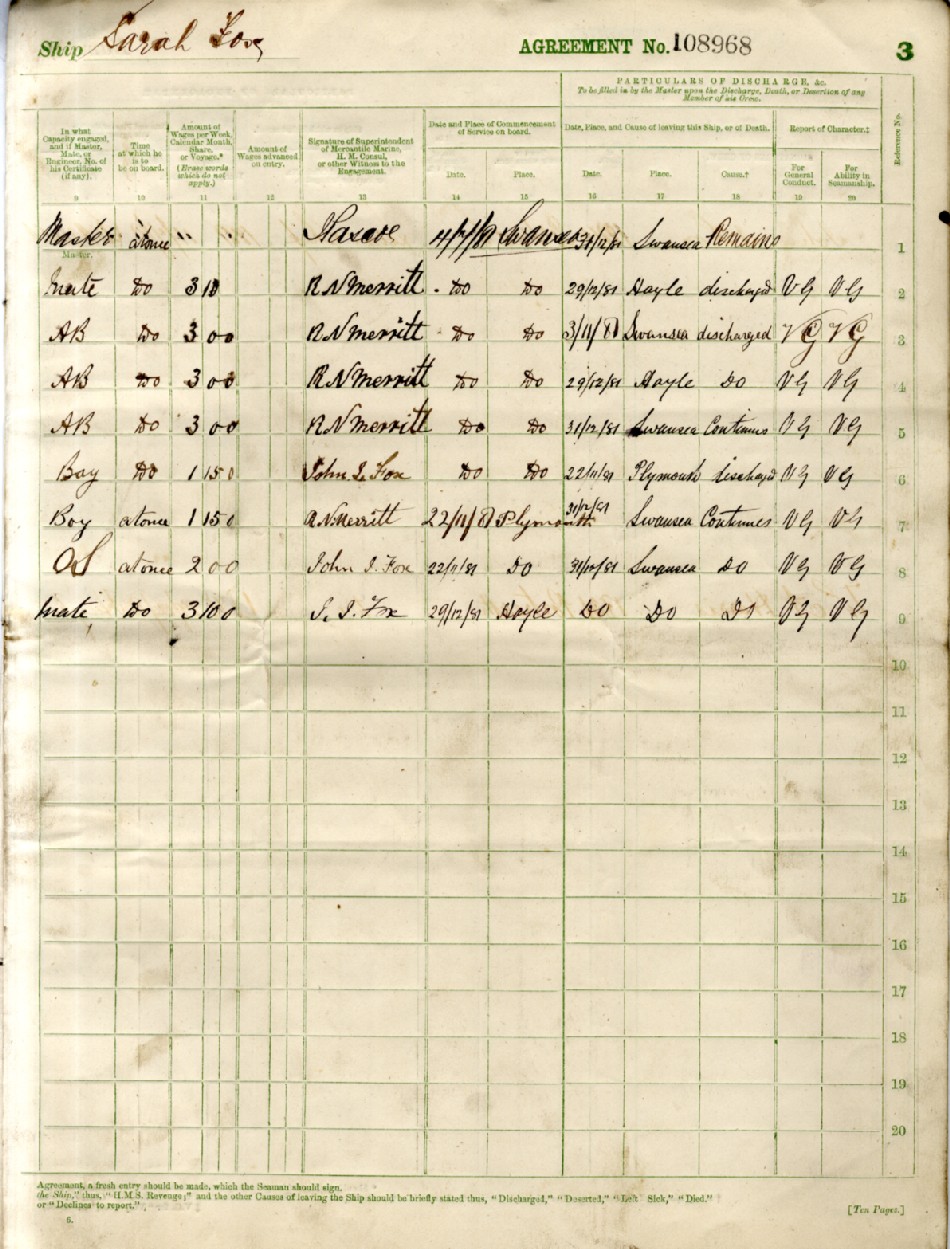 Ship Sarah Fox AGREEMENT No. 108968 3
PARTICULARS OF DISCHARGE, &c.
To be filled in by the Master upon the Discharge, Death, or Desertion of any Member of his Crew.
In what Capacity engaged, and if Master, Mate, or Engineer, No. of his Certificate (if any).
Time at which he is to be on board.
Amount of Wages per Week, Calendar Month, Share, or Voyage.* (Erase words which do not apply.)
Amount of Wages advanced on entry.
Signature of Superintendent of Mercantile Marine, H. M. Consul, or other Witness to the Engagement.
Date and Place of Commencement of Service on board.
Date. Place.
Date, Place, and Cause of leaving this Ship, or of Death.
Date. Place. Cause.†
Report of Character.‡
For General Conduct. For Ability in Seamanship.
Reference No.
9 10 11 12 13 14 15 16 17 18 19 20
Master at once " " Swansea 31/12/81 Swansea Remains 1
Master.
Mate Do 3 10 R N Merritt Do Do 29/12/81 Hayle discharged V G V G 2
AB Do 3 0 0 R N Merritt Do Do 3/11/81 Swansea discharged V G V G 3
AB Do 3 0 0 R N Merritt Do Do 29/12/81 Hayle Do V G V G 4
AB Do 3 0 0 R N Merritt Do Do 31/12/81 Swansea Continues V G V G 5
Boy Do 1 15 0 John I. Fox Do Do 22/11/81 Plymouth discharged V G V G 6
Boy at once 1 15 0 R N Merritt 22/11/81 Plymouth 31/12/81 Swansea Continues V G V G 7
OS at once 2 0 0 John I. Fox 22/11/81 Do 31/12/81 Swansea Do V G V G 8
Mate Do 3 10 0 J. I. Fox 29/12/81 Hayle Do Do Do V G V G 9
10
11
12
13
14
15
16
17
18
19
20
Agreement, a fresh entry should be made, which the Seaman should sign.
the Ship," thus, "H.M.S. Revenge;" and the other Causes of leaving the Ship should be briefly stated thus, "Discharged," "Deserted," "Left Sick," "Died."
or "Declines to report."
6. [Ten Pages.]